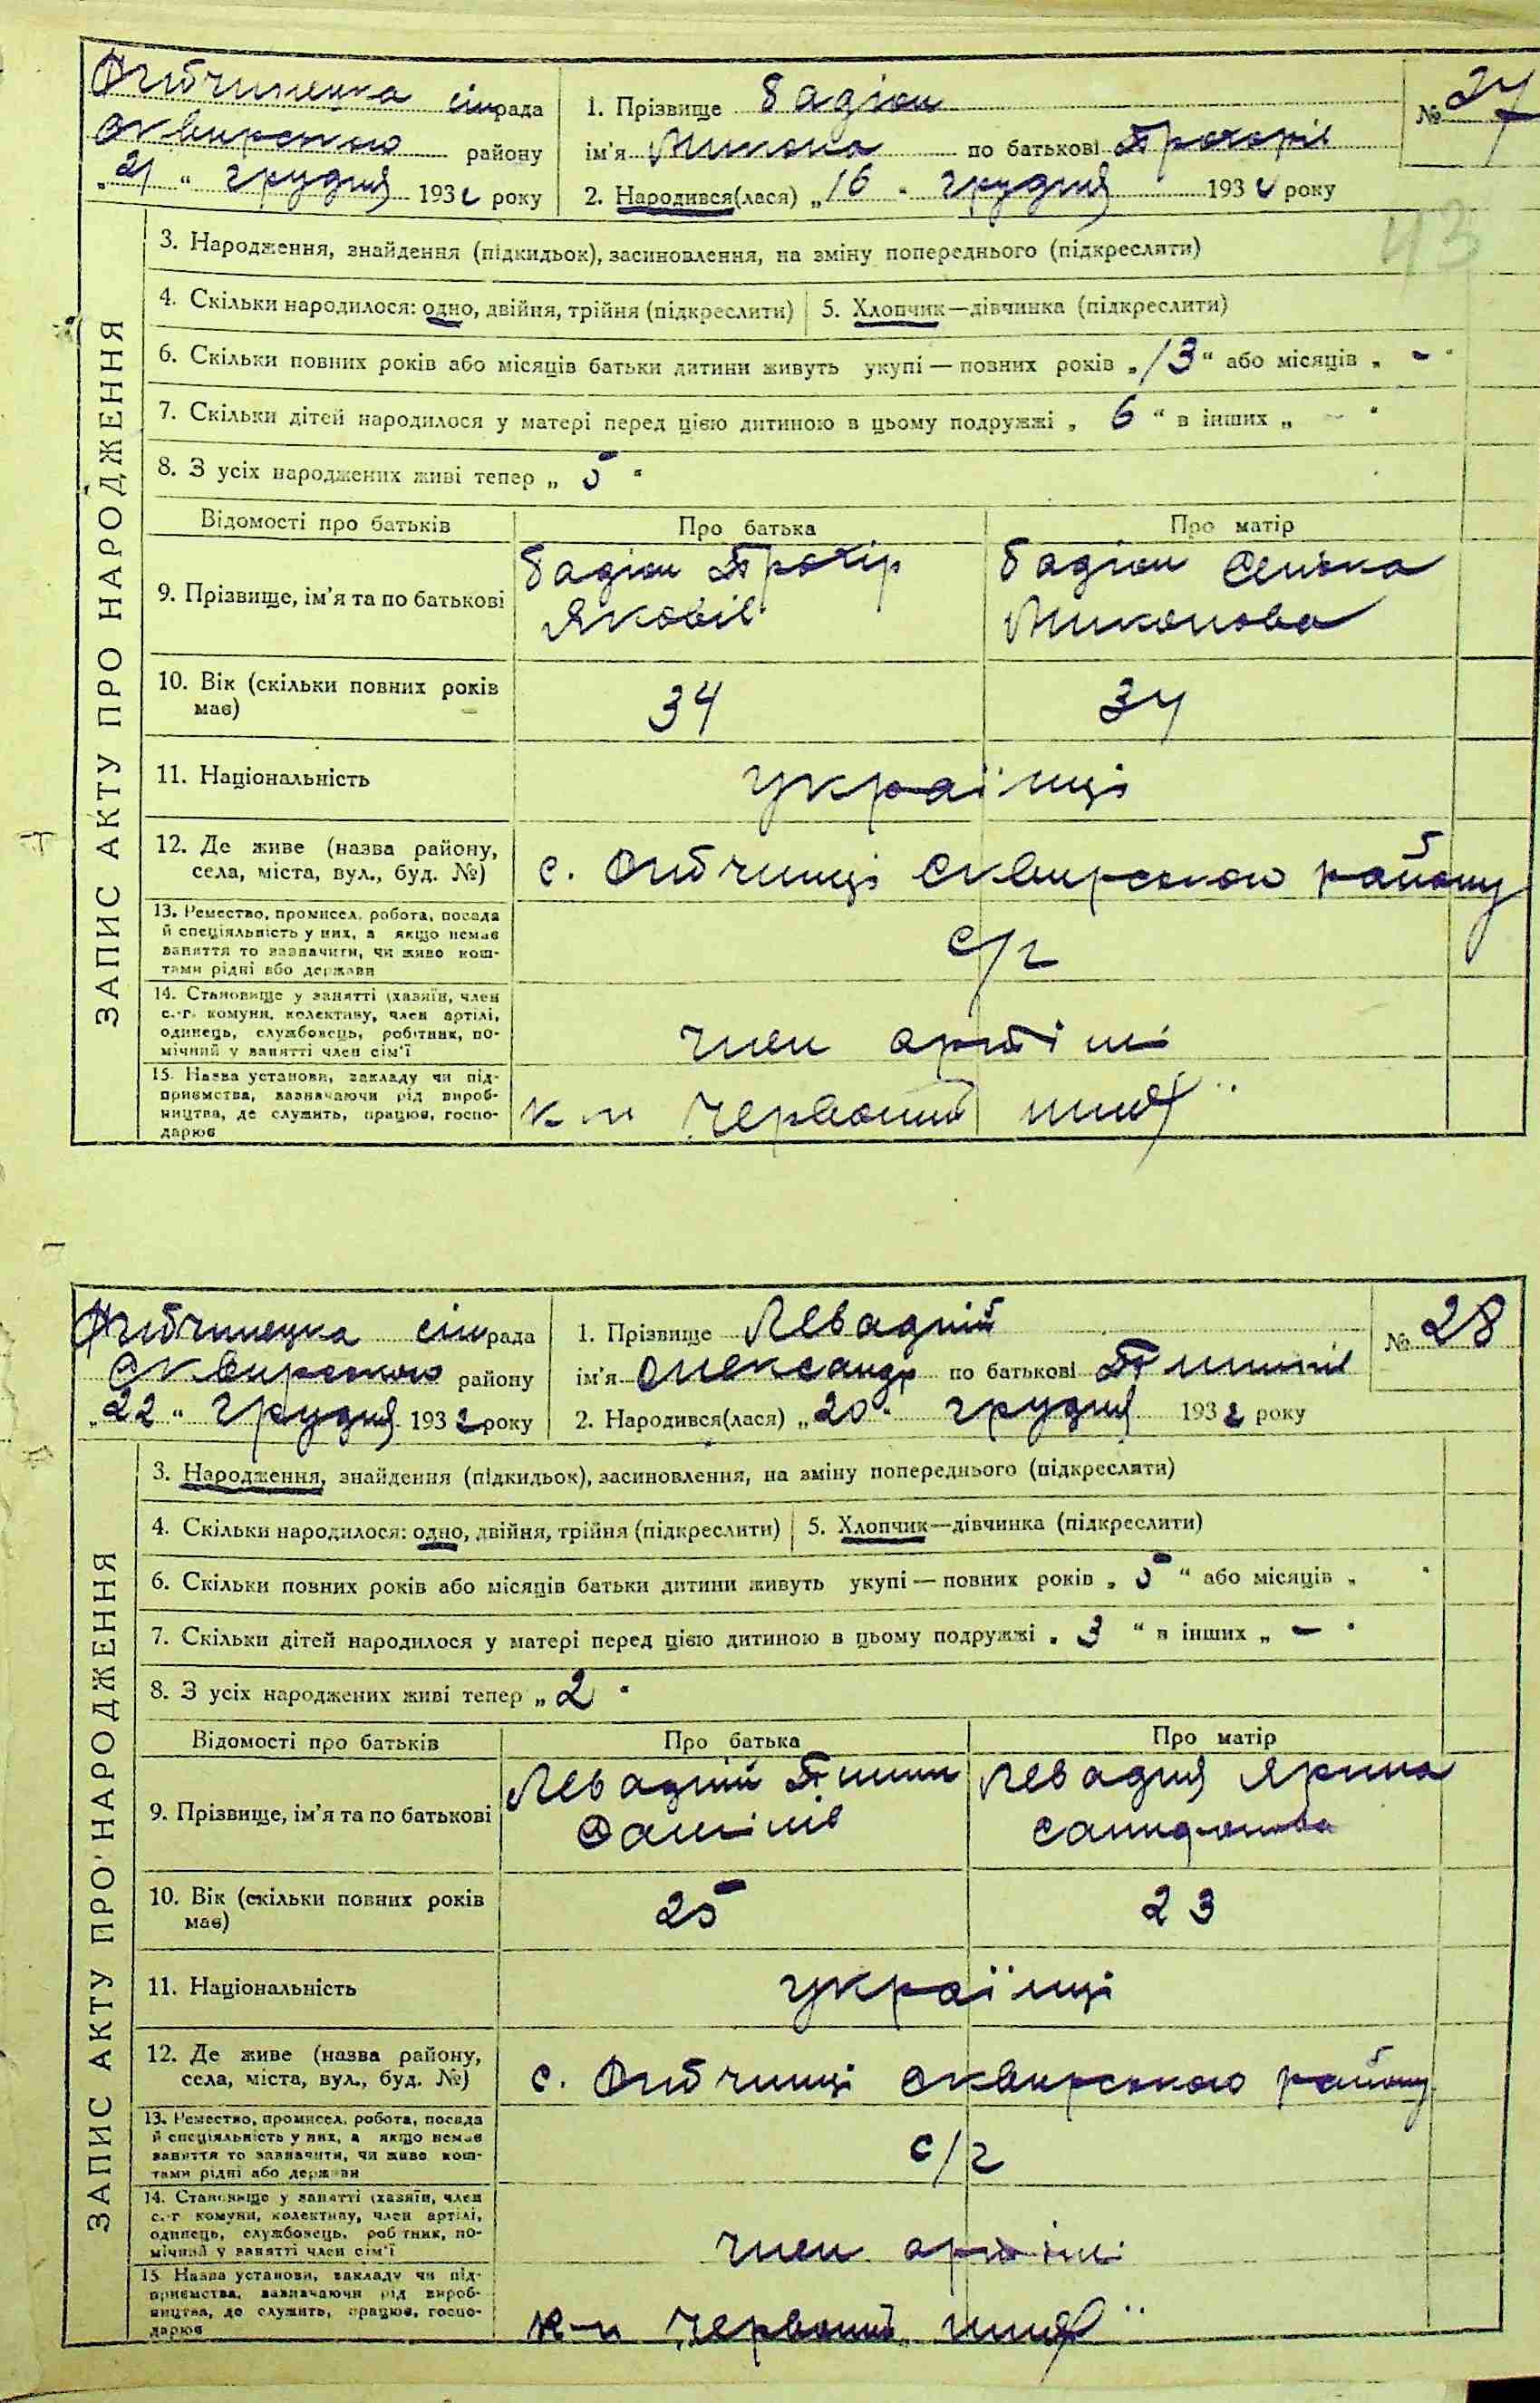 сільрада
1. Прізвище Бадюк
№ 27
Сквирського району
ім'я Микола по батькові Прохорів
„21“ грудня 1932 року
2. Народився(лася) „16“ грудня 1932 року
43
3. Народження, знайдення (підкидьок), засиновлення, на зміну попереднього (підкреслити)
4. Скільки народилося: одно, двійня, трійня (підкреслити)
5. Хлопчик—дівчинка (підкреслити)
6. Скільки повних років або місяців батьки дитини живуть укупі — повних років „13“ або місяців „-“
7. Скільки дітей народилося у матері перед цією дитиною в цьому подружжі „6“ в інших „-“
8. З усіх народжених живі тепер „5“
Відомості про батьків
Про батька
Про матір
9. Прізвище, ім'я та по батькові
Бадюк Прохір
Яковів
Бадюк
10. Вік (скільки повних років
має)
34
34
11. Національність
українці
12. Де живе (назва району,
села, міста, вул., буд. №)
с. Сквирського району
13. Ремество, промисел, робота, посада
й спеціяльність у них, а якщо немає
заняття то зазначити, чи живе кош-
тами рідні або держави
с/г
14. Становище у занятті (хазяїн, член
с.-г. комуни, колективу, член артілі,
одинець, службовець, робітник, по-
мічний у занятті член сім'ї
член артілі
15. Назва установи, закладу чи під-
приємства, зазначаючи рід вироб-
ництва, де служить, працює, госпо-
дарює
к-п „Червоний шлях“
ЗАПИС АКТУ ПРО НАРОДЖЕННЯ
сільрада
1. Прізвище Левадній
№ 28
Сквирського району
ім'я Олександр по батькові Пилипів
„22“ грудня 1932 року
2. Народився(лася) „20“ грудня 1932 року
3. Народження, знайдення (підкидьок), засиновлення, на зміну попереднього (підкреслити)
4. Скільки народилося: одно, двійня, трійня (підкреслити)
5. Хлопчик—дівчинка (підкреслити)
6. Скільки повних років або місяців батьки дитини живуть укупі — повних років „5“ або місяців „ “
7. Скільки дітей народилося у матері перед цією дитиною в цьому подружжі „3“ в інших „-“
8. З усіх народжених живі тепер „2“
Відомості про батьків
Про батька
Про матір
9. Прізвище, ім'я та по батькові
Левадній Пилип
Данилів
Левадня Ярина
10. Вік (скільки повних років
має)
25
23
11. Національність
українці
12. Де живе (назва району,
села, міста, вул., буд. №)
с. Сквирського району
13. Ремество, промисел, робота, посада
й спеціяльність у них, а якщо немає
заняття то зазначити, чи живе кош-
тами рідні або держави
с/г
14. Становище у занятті (хазяїн, член
с.-г. комуни, колективу, член артілі,
одинець, службовець, робітник, по-
мічний у занятті член сім'ї
член артілі
15. Назва установи, закладу чи під-
приємства, зазначаючи рід вироб-
ництва, де служить, працює, госпо-
дарює
к-п „Червоний шлях“
ЗАПИС АКТУ ПРО НАРОДЖЕННЯ